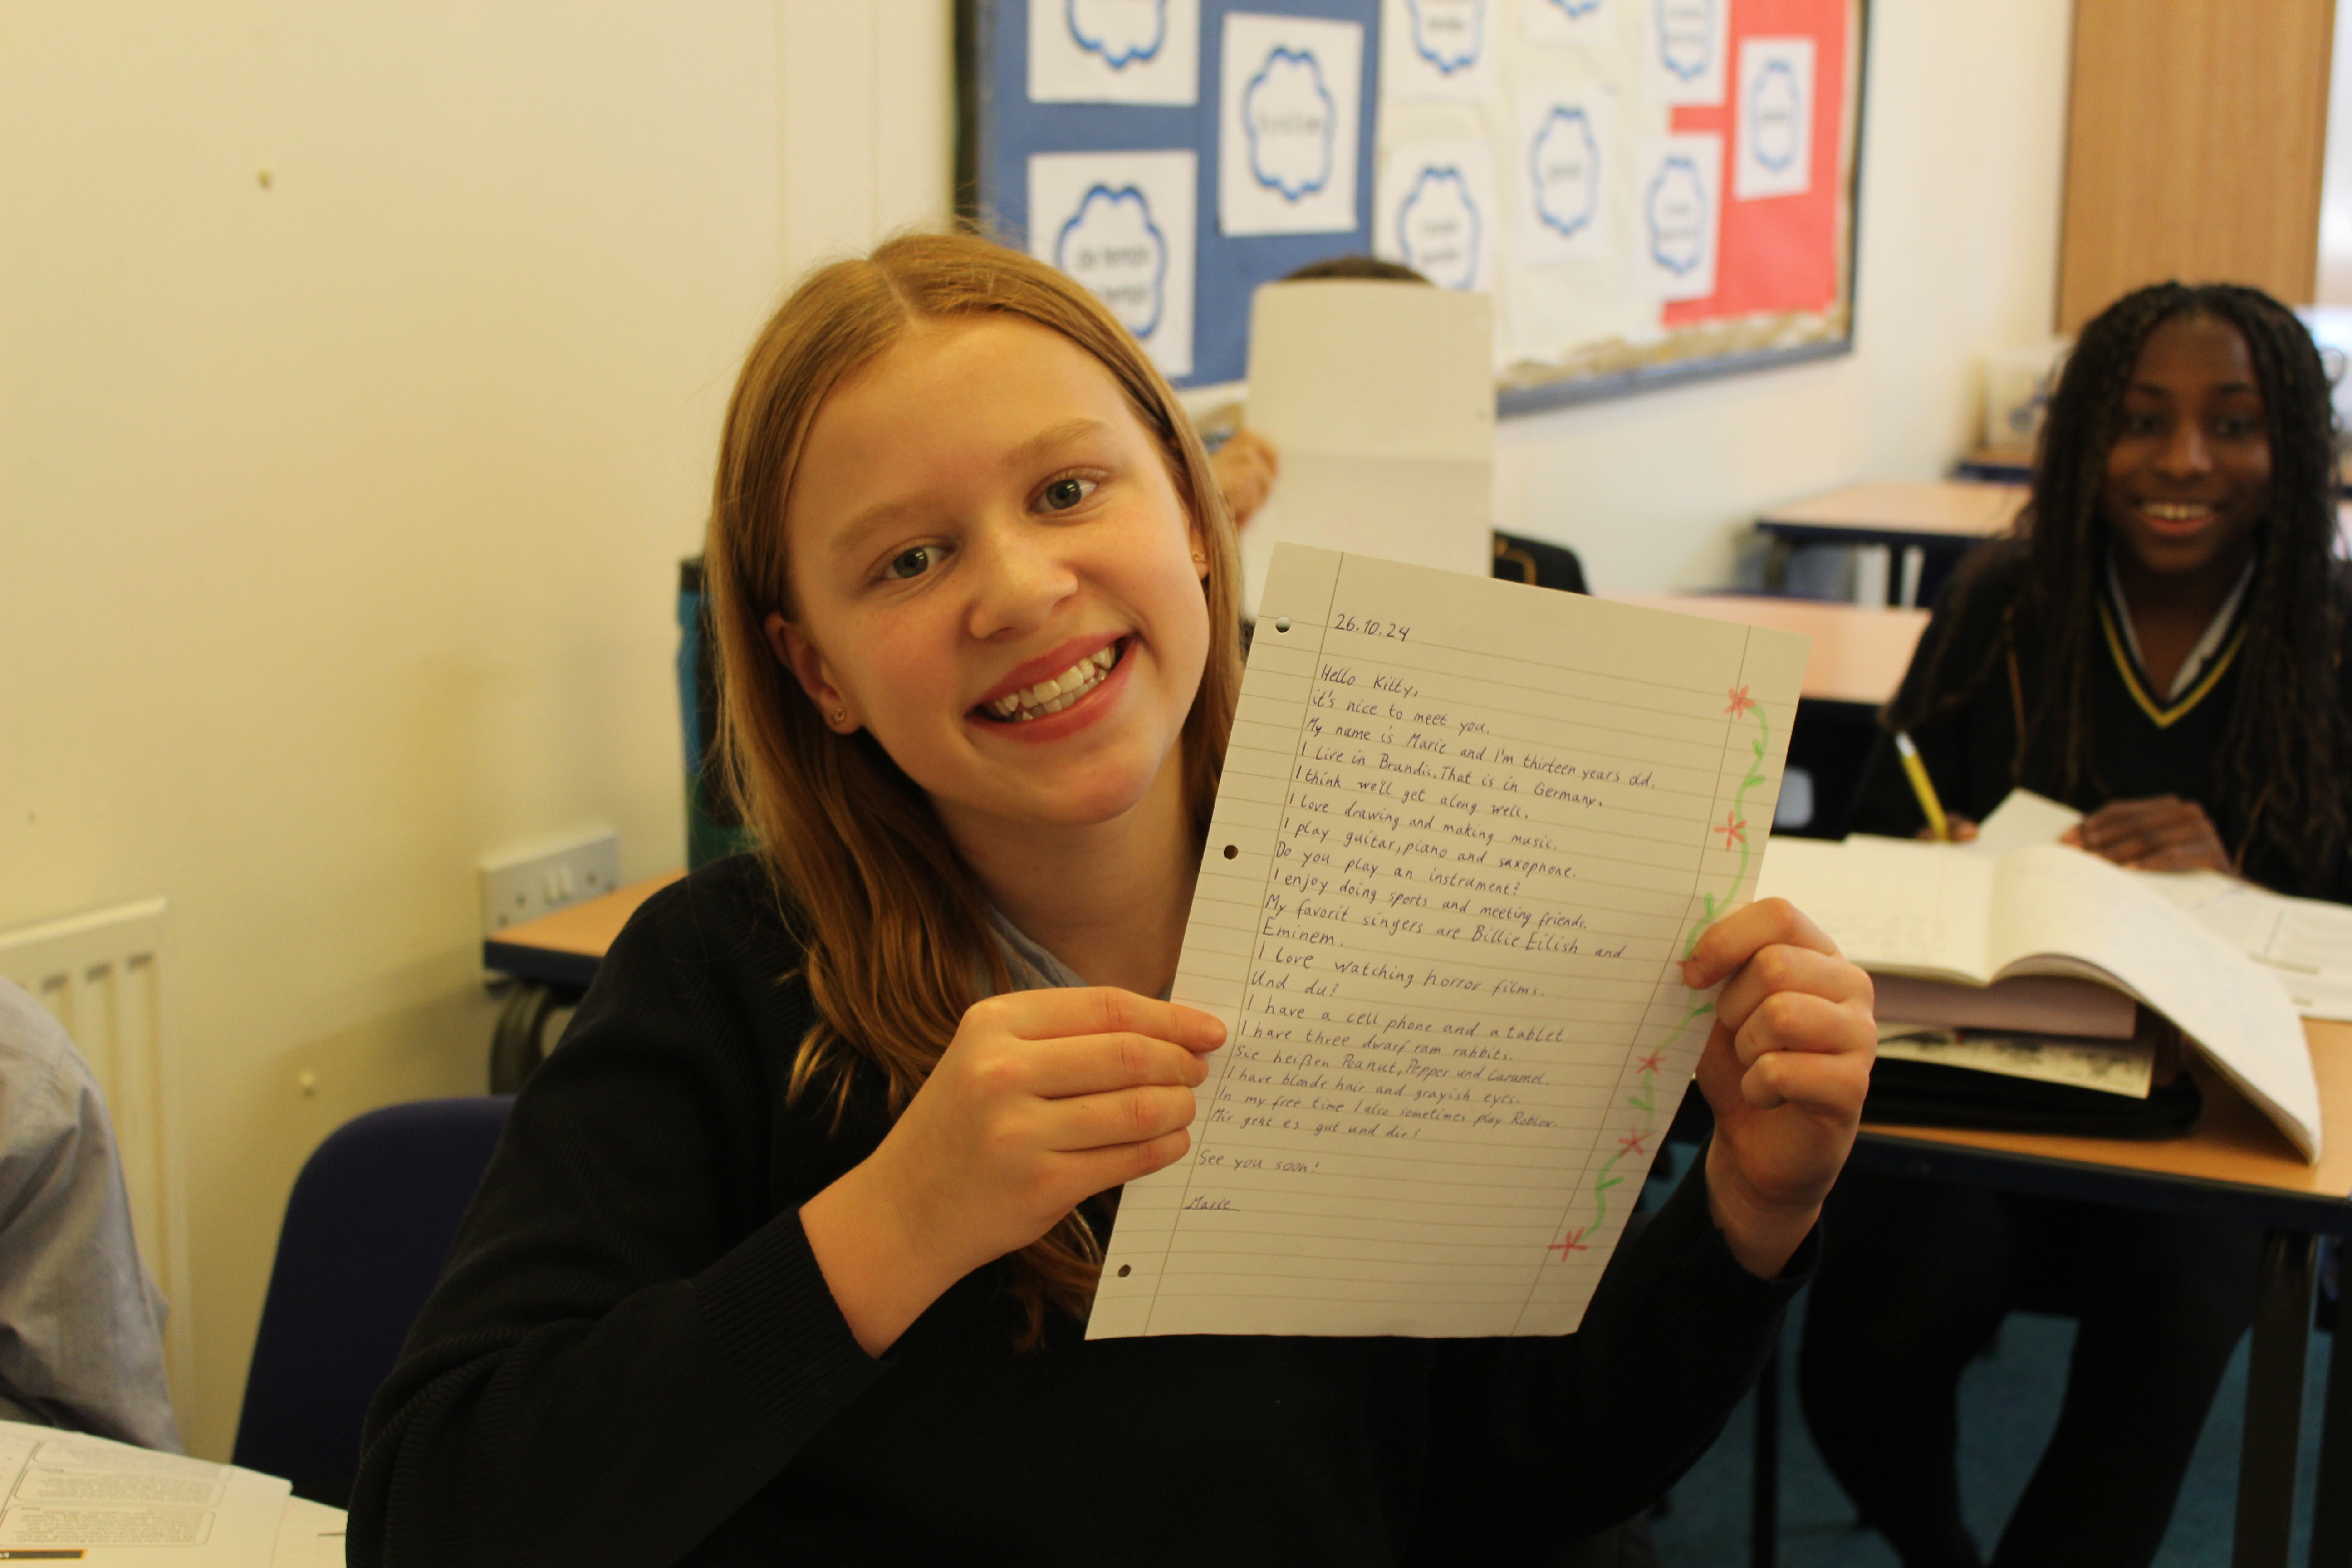 26.10.24
Hello Kitty,
it's nice to meet you.
My name is Marie and I'm thirteen years old.
I Live in Brandis. That is in Germany.
I think we'll get along well.
I love drawing and making music.
I play guitar, piano and saxophone.
Do you play an instrument?
I enjoy doing sports and meeting friends.
My favorit singers are Billie Eilish and
Eminem.
I Love watching horror films.
Und du?
I have a cell phone and a tablet
I have three dwarf ram rabbits.
Sie heißen Peanut, Pepper und Caramel.
I have blonde hair and grayish eyes.
In my free time I also sometimes play Roblox.
Mir geht es gut und dir?
See you soon!
Marie